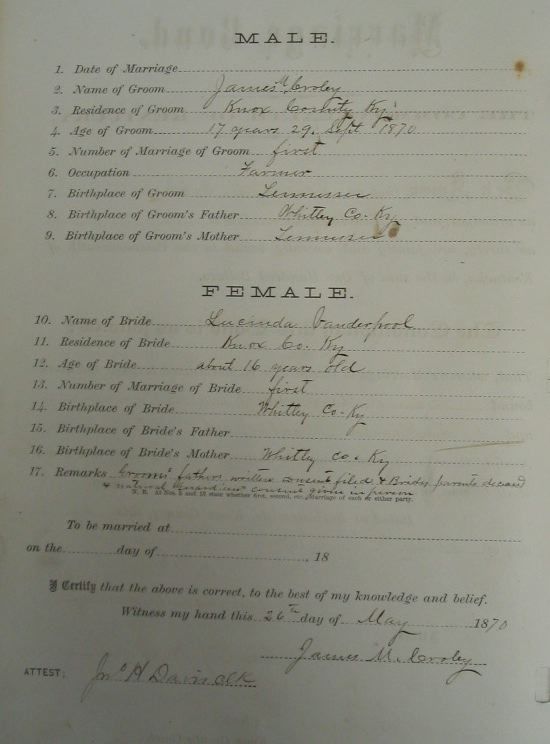 MALE.
1. Date of Marriage
2. Name of Groom James M. Croley
3. Residence of Groom Knox County Ky.
4. Age of Groom 17 years 29. Sept 1870
5. Number of Marriage of Groom first
6. Occupation Farmer
7. Birthplace of Groom Tennessee
8. Birthplace of Groom's Father Whitley Co. Ky
9. Birthplace of Groom's Mother Tennessee
FEMALE.
10. Name of Bride Lucinda Vanderpool
11. Residence of Bride Knox Co. Ky
12. Age of Bride about 16 years old
13. Number of Marriage of Bride first
14. Birthplace of Bride Whitley Co-Ky
15. Birthplace of Bride's Father
16. Birthplace of Bride's Mother Whitley Co. Ky
17. Remarks Grooms fathers written consent filed & Brides parents deceased
& natural guardian consent given in person
N. B. At Nos. 5 and 13 state whether first, second, etc., Marriage of each or either party.
To be married at
on the day of , 18
I Certify that the above is correct, to the best of my knowledge and belief.
Witness my hand this 26th day of May 1870
James M. Croley
ATTEST: Jno H Davis clk